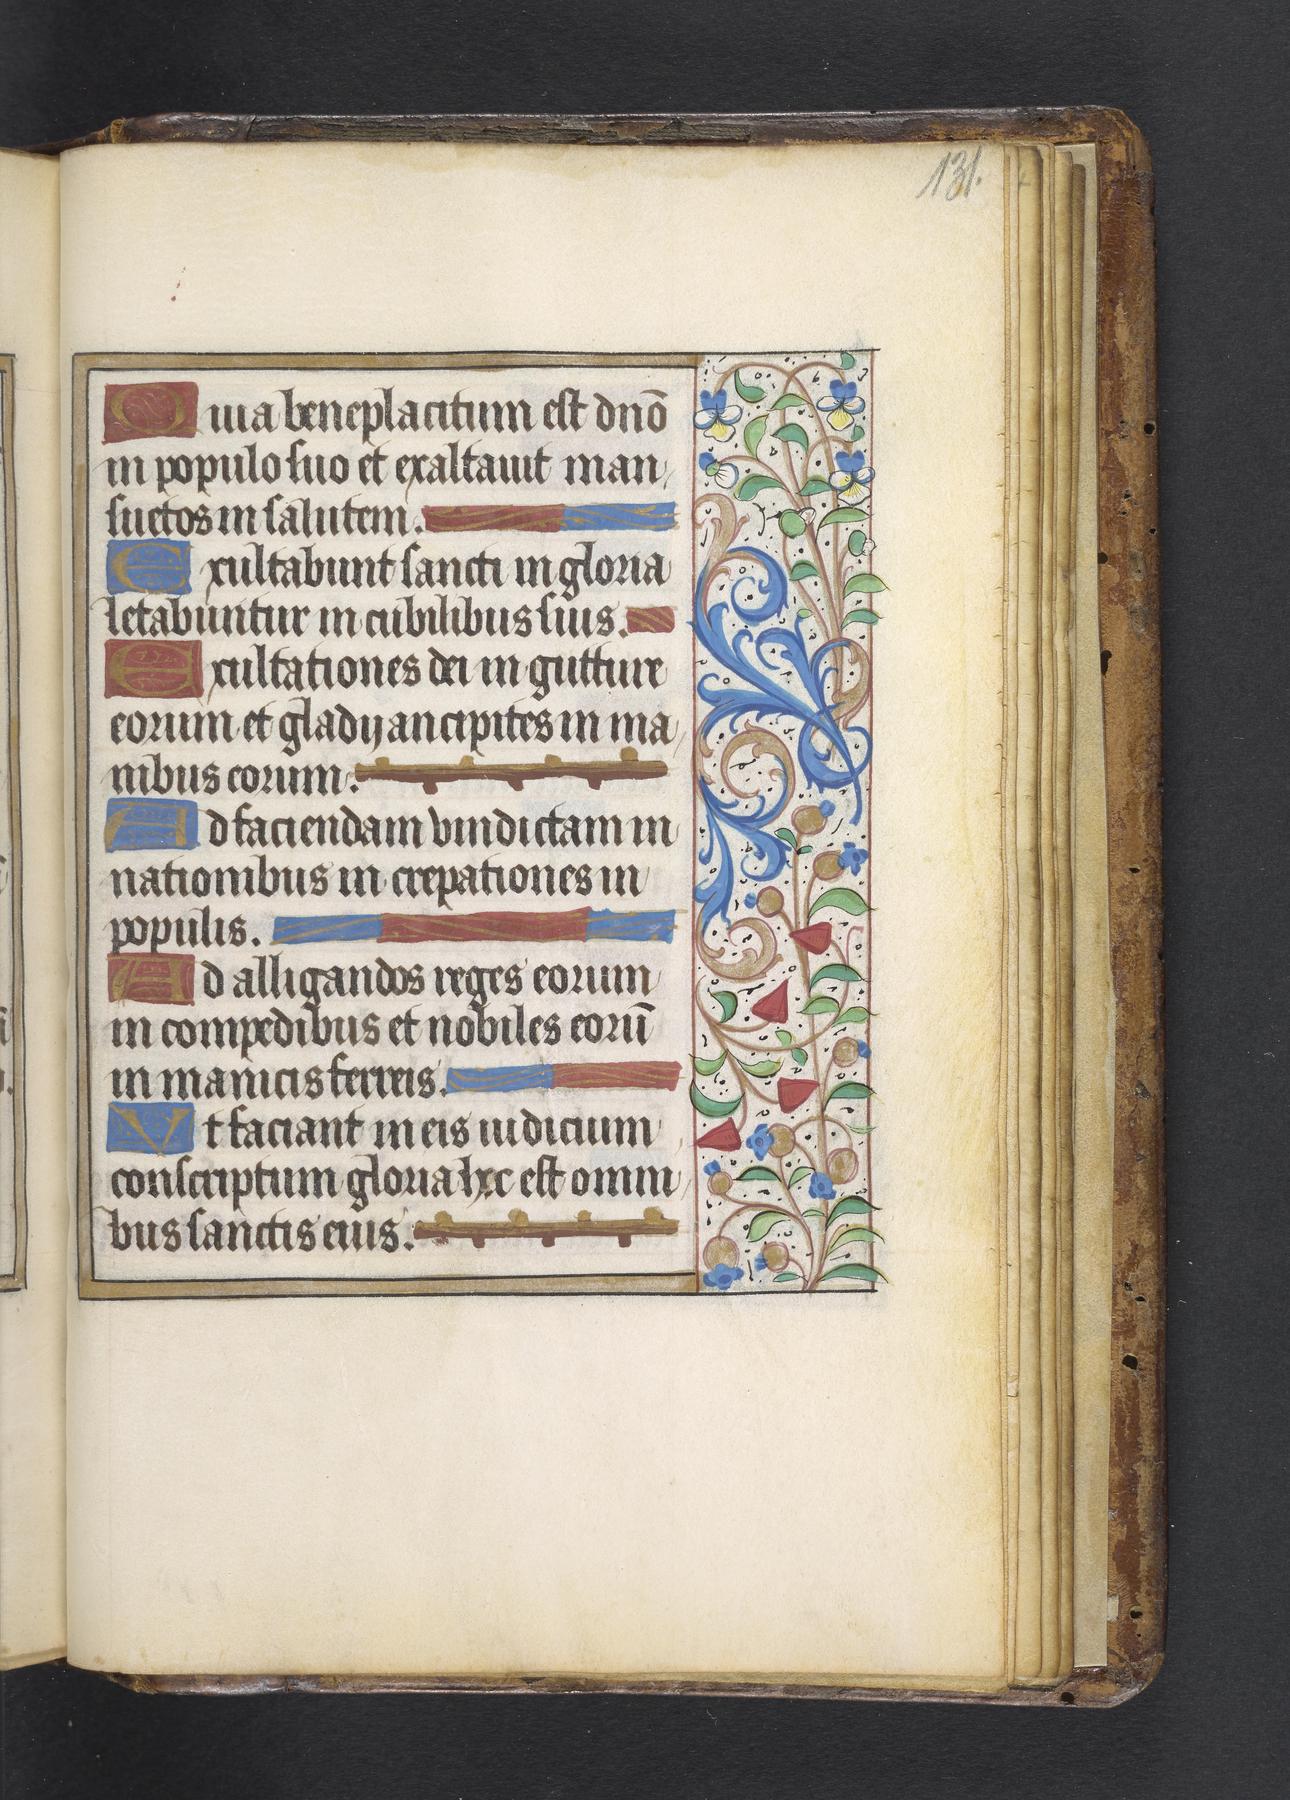 131.
Quia beneplacitum est dnō
in populo suo et exaltauit man-
suetos in salutem.
Exultabunt sancti in gloria
letabuntur in cubilibus suis.
Exultationes dei in gutture
eorum et gladij ancipites in ma-
nibus eorum.
Ad faciendam vindictam in
nationibus in crepationes in
populis.
Ad alligandos reges eorum
in compedibus et nobiles eorū
in manicis ferreis.
Vt faciant in eis iudicium
conscriptum gloria hec est omni-
bus sanctis eius.